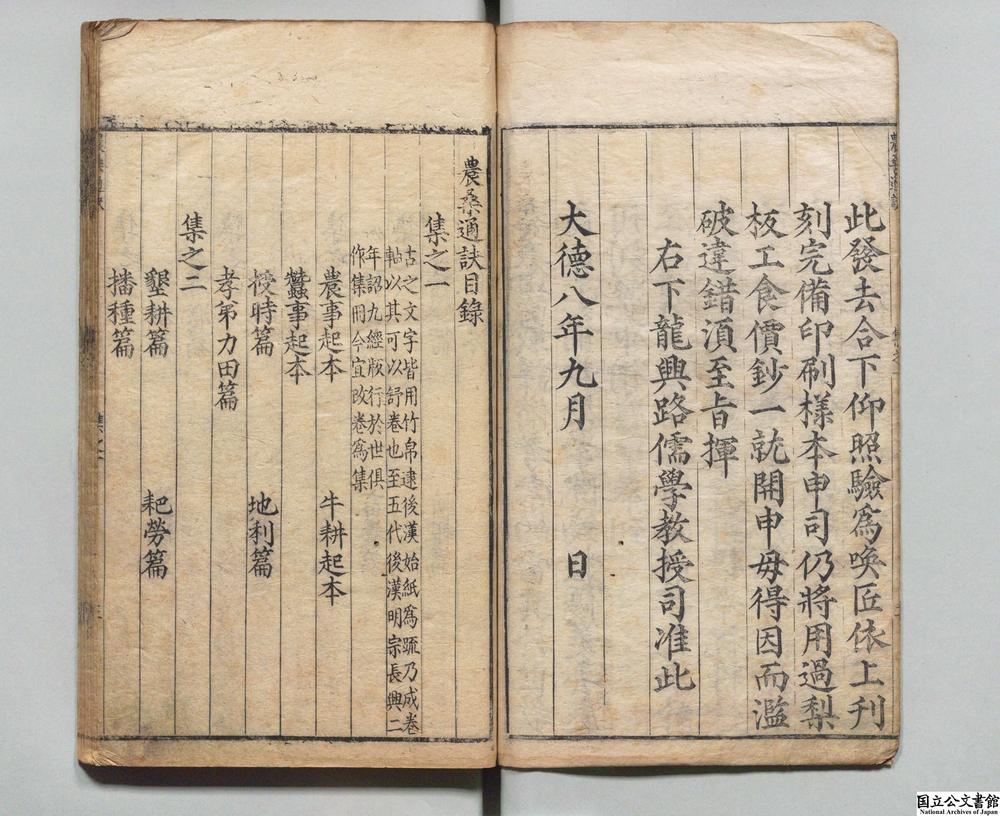 此發去合下仰照驗爲喚匠依上刊
刻完備印刷樣本申司仍將用過梨
板工食價鈔一就開申毋得因而濫
破違錯湏至旨揮
右下龍興路儒學教授司准此
大德八年九月 日
農桑通訣目錄
集之一
古之文字皆用竹帛逮後漢始紙爲䟽乃成卷
軸以其可以舒卷也至五代後漢明宗長興二
年詔九經版行於世俱
作集冊今宜改卷爲集
農事起本 牛耕起本
蠶事起本
授時篇 地利篇
孝弟力田篇
集之二
墾耕篇 耙勞篇
播種篇
国立公文書館
National Archives of Japan